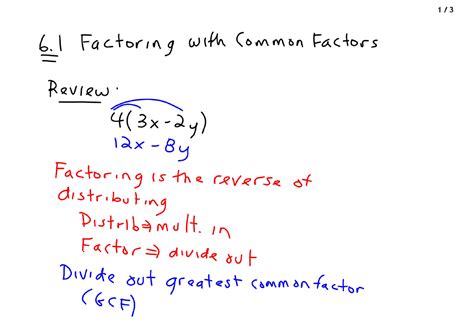 1 / 3
6.1 Factoring with Common Factors
Review:
4(3x-2y)
12x - 8y
Factoring is the reverse of
distributing
Distrib⇒mult. in
Factor ⇒ divide out
Divide out greatest common factor
(GCF)